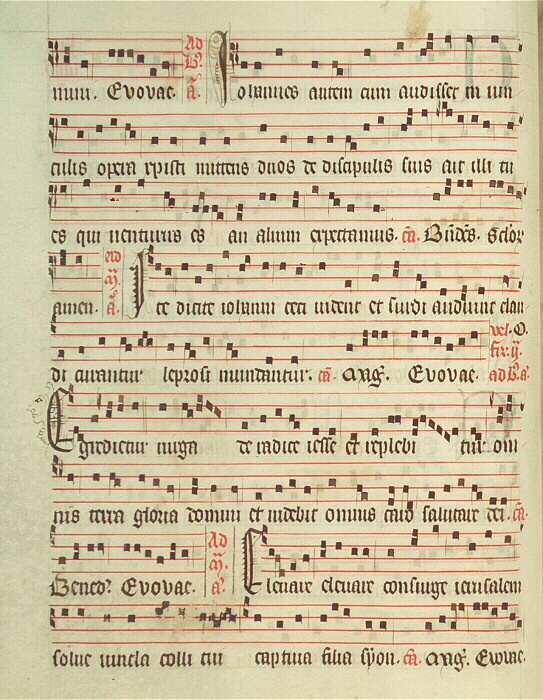 mini. Evovae. Ad B. a. Iohannes autem cum audisset in uin
culis opera xpisti mittens duos de discipulis suis ait illi tu
es qui uenturus es an alium expectamus. ca. Bnds. Sclor
amen. ad m a. Ite dicite iohanni ceci uident et surdi audiunt clau
di curantur leprosi mundantur. ca. Mag. Evovae. vel. O. fer. ij. ad B. a.
Egredietur uirga de radice iesse et replebi tur om
nis terra gloria domini et uidebit omnis caro salutare dei. ca.
Bened. Evovae. Ad m. a. Eleuare eleuare consurge ierusalem
solue uincla colli tui captiua filia syon. ca. Mag. Evovae.